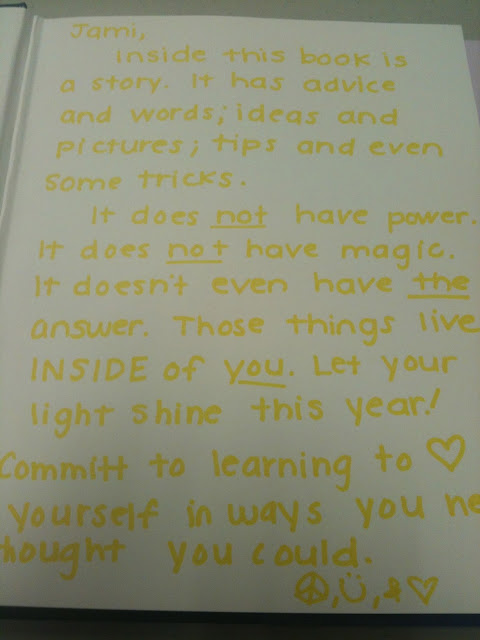 Jami,
Inside this book is
a story. It has advice
and words; ideas and
pictures; tips and even
some tricks.
It does not have power.
It does not have magic.
It doesn't even have the
answer. Those things live
INSIDE of you. Let your
light shine this year!
Committ to learning to ♡
yourself in ways you ne
hought you could.
☮, ü, & ♡